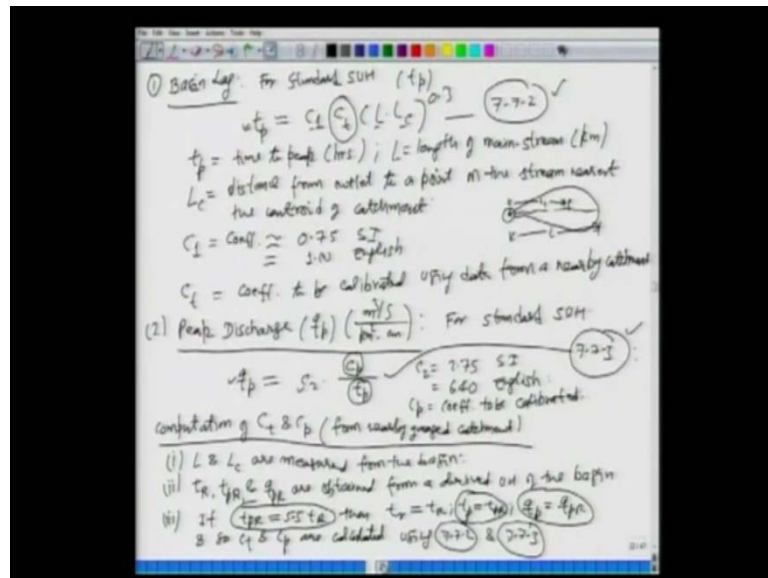 ① Basin Lag: For Standard SUH (tp)
tp = C1 Ct (L·Lc)^0.3 — 7.7.2 ✓
tp = time to peak (hrs); L = length of main stream (km)
Lc = distance from outlet to a point on the stream nearest
the centroid of catchment.
C1 = Coeff. ≈ 0.75 S.I
= 1.00 English
Ct = coeff. to be calibrated using data from a nearby catchment
(2) Peak Discharge (qp) (m³/s / : For standard SUH.
qp = C2 · Cp/tp 7.7.3 ✓
C2 = 2.75 S.I
= 640 English.
Cp = coeff. to be calibrated.
Computation of Ct & Cp (from nearby gauged catchment)
(i) L & Lc are measured from the basin.
(ii) tR, tpR, & qpR are obtained from a derived UH of the basin
(iii) If tpR = 5.5 tR then tr = tR; tp = tpR; qp = qpR
& so Ct & Cp are calculated using 7.7.2 & 7.7.3